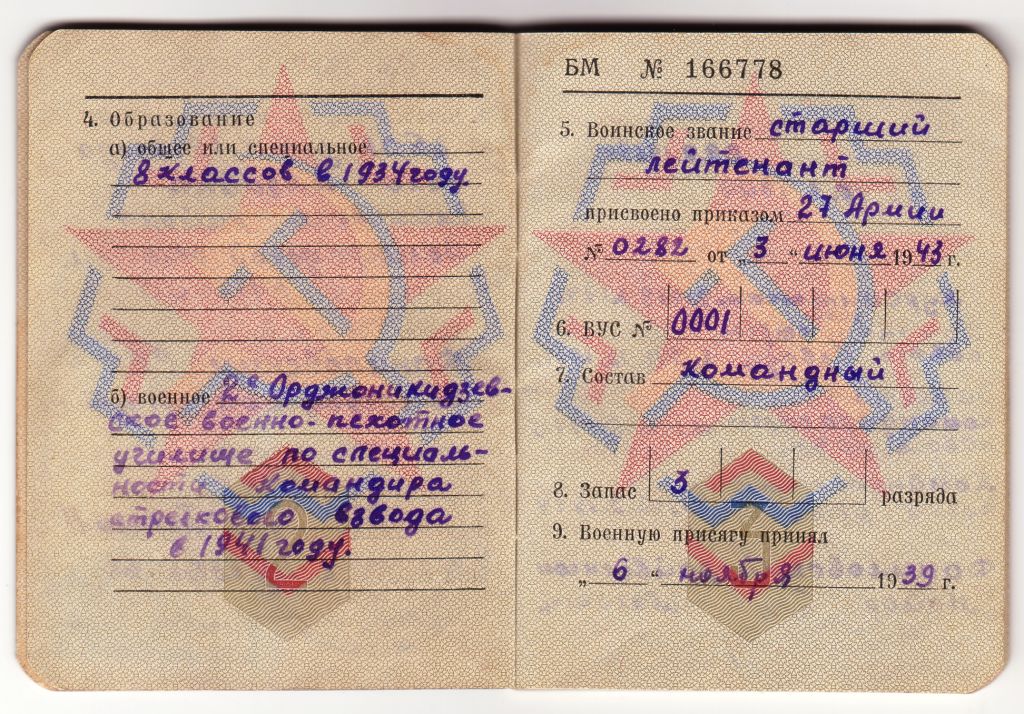 4. Образование
а) общее или специальное
8 классов в 1934 году.
б) военное 2е Орджоникидзев-
ское военно-пехотное
училище по специаль-
ности командира
стрелкового взвода
в 1941 году.
БМ № 166778
5. Воинское звание старший
лейтенант
присвоено приказом 27 Армии
№ 0282 от „ 3 “ июня 1943 г.
6. ВУС № 0001
7. Состав командный
8. Запас 3 разряда
9. Военную присягу принял
„ 6 “ ноября 1939 г.